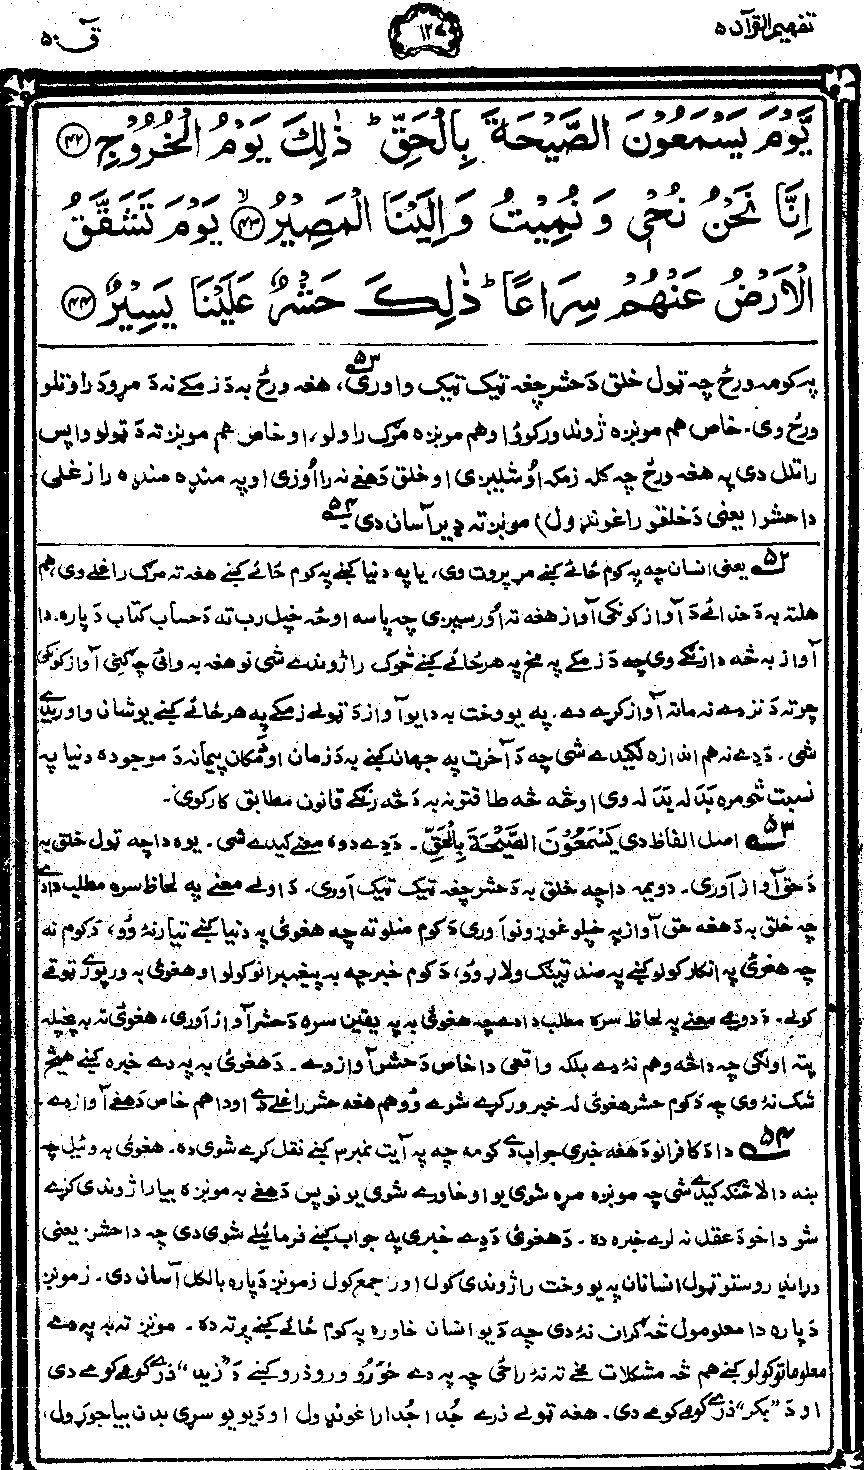 تفهیم القرآن ۵
۱۲۷
قٓ ۵۰
يَّوْمَ يَسْمَعُوْنَ الصَّيْحَةَ بِالْحَقِّ ؕ ذٰلِكَ يَوْمُ الْخُرُوْجِ ﴿۴۲﴾
اِنَّا نَحْنُ نُحْيٖ وَ نُمِيْتُ وَ اِلَيْنَا الْمَصِيْرُ ﴿۴۳﴾ۙ يَوْمَ تَشَقَّقُ
الْاَرْضُ عَنْهُمْ سِرَاعًا ؕ ذٰلِكَ حَشْرٌ عَلَيْنَا يَسِيْرٌ ﴿۴۴﴾
په کومه ورځ چه ټول خلق دَ حشر چغه ټیک ټیک واوری ۵۳، هغه ورځ به دَ زمکے نه دَ مرو دَ راوتلو
ورځ وی۔ خاص هم مونږه ژوند ورکوو او هم مونږه مرګ راولو، او خاص هم مونږ ته دَ ټولو واپس
راتلل دی په هغه ورځ چه کله زمکه اوشلیږی او خلق دَهغے نه را اوزی او په منډه منډه را زغلی
دا حشر (یعنی دَ خلقو راغونډول) مونږ ته ډیر آسان دی ۵۴
۵۲ یعنی انسان چه په کوم ځائے کښے مړ پروت وی، یا په دنیا کښے په کوم ځائے کښے هغه ته مرګ راغلے وی، هم
هلته به دَ خدائے دَ آواز کونکی آواز هغه ته اورسیږی چه پاسه او ځه خپل رب ته دَ حساب کتاب دَ پاره۔ دا
آواز به څه دا رنګے وی چه دَ زمکے په مخ په هر ځائے کښے څوک را ژوندے شی نو هغه به وائی چه کنی آواز کونکی
چرته دَ نزدے نه ماته آواز کړے دے۔ په یو وخت به دا یو آواز دَ ټولے زمکے په هر ځائے کښے یو شان واوریدے
شی۔ دَدے نه هم اندازه لګیدے شی چه دَ آخرت په جهان کښے به دَ زمان او مکان پیمانه دَ موجوده دنیا په
نسبت څومره بدَله بدَله وی او څه څه طاقتونه به دَ څه رنګے قانون مطابق کار کوی۔
۵۳ اصل الفاظ دی يَسْمَعُوْنَ الصَّيْحَةَ بِالْحَقِّ ۔ دَدے دوه معنے کیدے شی۔ یوه دا چه ټول خلق به
دَ حق آواز اوری۔ دویمه دا چه خلق به دَ حشر چغه ټیک ټیک آوری۔ دَ اولے معنے په لحاظ سره مطلب دادے
چه خلق به دَ هغه حق آواز په خپلو غوږونو آوری دَ کوم منلو ته چه هغوئ په دنیا کښے تیار نۀ وُو، دَ کوم نه
چه هغوئ په انکار کولو کښے په ضد ټینګ ولاړ وو، دَ کوم خبر چه به پیغمبرانو کولو او هغوئ به ورپورے ټوقے
کولے۔ دَ دویمے معنے په لحاظ سره مطلب دادے چه هغوئ به په یقین سره دَ حشر آواز آوری، هغوئ ته به پخپله
پته اولګی چه دا څه وهم نۀ دے بلکه واقعی دا خاص دَ حشر آواز دے۔ دَ هغوئ به په دے خبره کښے هیڅ
شک نۀ وی چه دَ کوم حشر هغوئ له خبر ورکړے شوے وُو هم هغه حشر راغلے دے او دا هم خاص دَ هغے آواز دے۔
۵۴ دا دَ کافرانو دَ هغه خبرے جواب دے کومه چه په آیت نمبر ۳ کښے نقل کړے شوی ده۔ هغوئ به وئیل چه
ښه دا لا څنګه کیدے شی چه مونږه مړه شوی یو او خاورے شوی یو نو پس دَ هغے به مونږه بیا را ژوندی کړے
شو دا خو دَ عقل نه لرے خبره ده۔ دَ هغوئ دَ دے خبرے په جواب کښے فرمائیلے شوی دی چه دا حشر یعنی
وړاندے روستو ټول انسانان په یو وخت را ژوندی کول اور جمع کول زمونږ دَ پاره بالکل آسان دی۔ زمونږ
دَ پاره دا معلومول څه ګران نۀ دی چه دَ یو انسان خاوره په کوم ځائے کښے پرته ده۔ مونږ ته به په دے
معلوماتو کولو کښے هم څه مشکلات مخے ته نۀ راځی چه په دے خورو ورو ذرو کښے دَ ”زید“ ذرے کومے کومے دی
او دَ ”بکر“ ذرے کومے کومے دی۔ هغه ټولے ذرے جُدا جُدا راغونډول او دَ یو یو سړی بدن بیا جوړول،